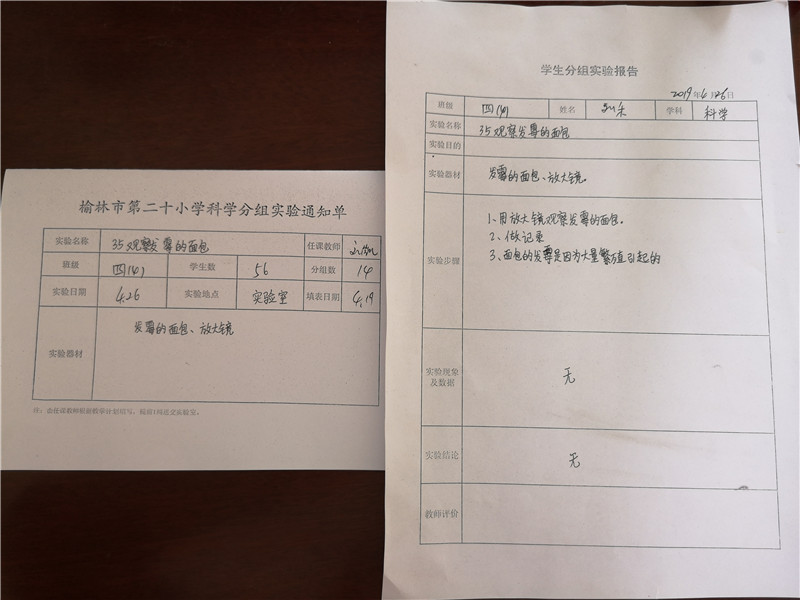 榆林市第二十小学科学分组实验通知单
实验名称 35观察发霉的面包 任课教师
班级 四(4) 学生数 56 分组数 14
实验日期 4.26 实验地点 实验室 填表日期 4.19
实验器材 发霉的面包、放大镜
注:由任课教师根据教学计划填写,提前1周送交实验室。
学生分组实验报告
2019年4月26日
班级 四(4) 姓名 学科 科学
实验名称 35观察发霉的面包
实验目的
实验器材 发霉的面包、放大镜。
实验步骤
1、用放大镜观察发霉的面包。
2、做记录
3、面包的发霉是因为大量繁殖引起的
实验现象及数据 无
实验结论 无
教师评价